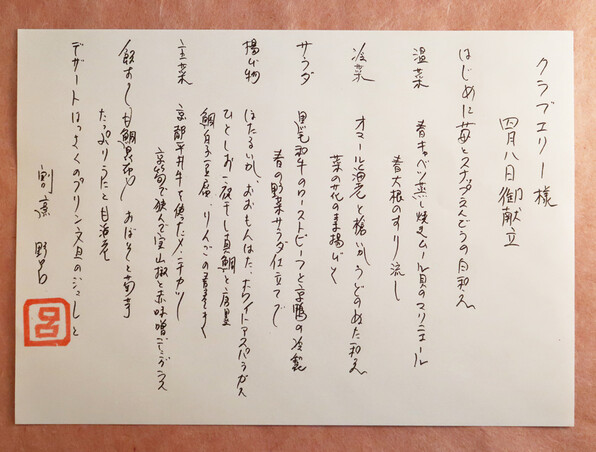 クラブエリー様
四月八日御献立
はじめに 苺とスナップえんどうの白和え
温菜 春キャベツ蒸し焼き ムール貝のマリニエール
春大根のすり流し
冷菜 オマール海老と槍いか うどのぬた和え
菜の花のま揚げと
サラダ 黒毛和牛のローストビーフと京鴨の冷製
春の野菜サラダ仕立てで
揚げ物 ほたるいか、おおもんはた、ホワイトアスパラガス
ひとしお 一夜干し真鯛と
鯛白子豆腐 りんごの
主菜 京都平井牛を使ったメンチカツ
京筍で挟んで 実山椒と赤味噌
飯むし 甘鯛昆布〆 おぼろと
たっぷりうにと甘海老
デザート はっさくのプリン 文旦のジュレと
割烹 野呂
呂